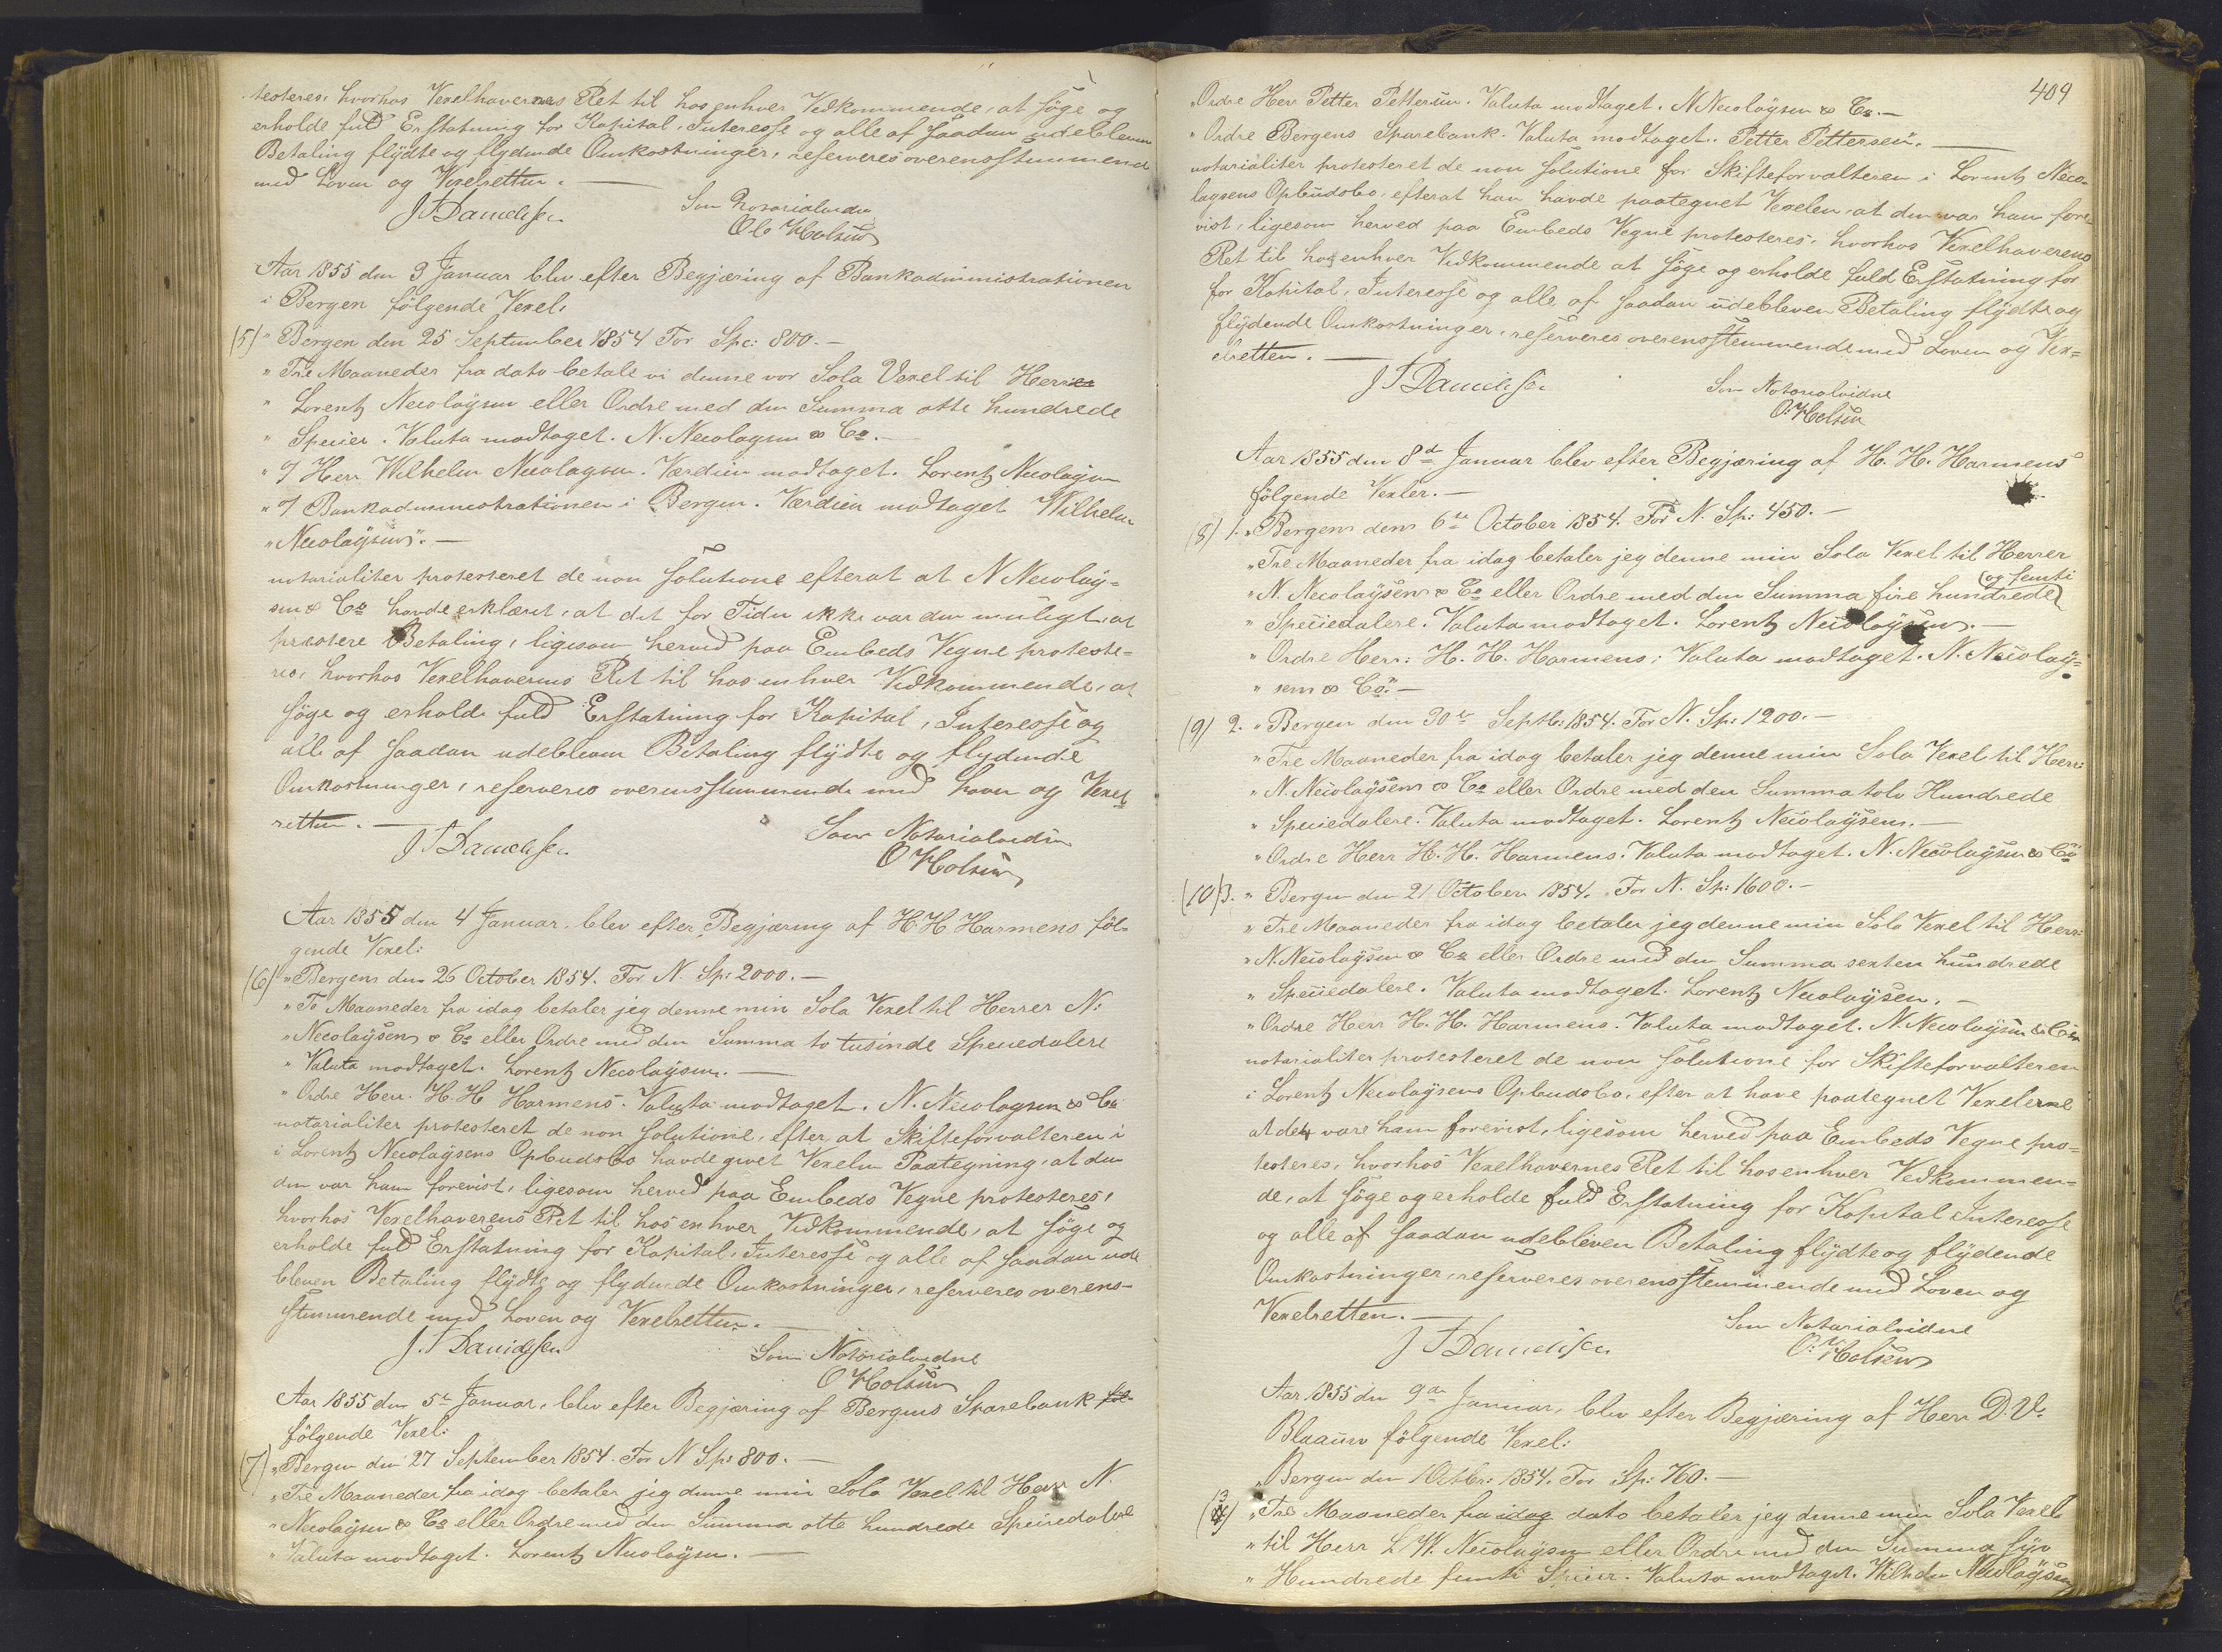 testeres, hvorhos Vexelhavernes Ret til hos enhver Vedkommende, at søge og
erholde fuld Erstatning for Kapital, Interesse og alle af saadan udebleven
Betaling flydte og flydende Omkostninger, reserveres overensstemmende
med Loven og Vexelretten. —
J S Danielssen
Som Notarialvidne
Ol. Holsen
Aar 1855 den 3 Januar blev efter Begjæring af Bankadministrationen
i Bergen følgende Vexel:
(5) " Bergen den 25 September 1854 For Spc: 800. —
" Tre Maaneder fra dato betale vi denne vor Sola Vexel til Herrer
" Lorentz Nicolaÿsen eller Ordre med den Summa otte hundrede
" Specier. Valuta modtaget. N. Nicolaysen & Co. —
" / Herr Wilhelm Nicolaysen. Værdien modtaget. Lorentz Nicolaysen
" / Bankadministrationen i Bergen. Værdien modtaget Wilhelm
" Nicolaÿsen". —
notarialiter protesteret de non solutione efterat at N Nicolaÿ=
sen & Co havde erklæret, at det for Tiden ikke var dem muligt, at
præstere Betaling, ligesom herved paa Embeds Vegne proteste=
res, hvorhos Vexelhaverens Ret til hos enhver Vedkommende, at
søge og erholde fuld Erstatning for Kapital, Interesse og
alle af saadan udebleven Betaling flÿdte og flydende
Omkostninger, reserveres overensstemmende med Loven og Vexel=
retten. —
J S Danielssen
Som Notarialvidne
O Holsen
Aar 1855 den 4 Januar, blev efter Begjæring af H. H. Harmens føl-
gende Vexel:
(6) " Bergen den 26 October 1854. For N. Sp: 2000. —
" To Maaneder fra idag betaler jeg denne min Sola Vexel til Herrer N:
" Nicolaÿsen & Co eller Ordre med den Summa to tusinde Speciedalere
" Valuta modtaget. Lorentz Nicolaÿsen. —
" Ordre Herr. H. H Harmens. Valuta modtaget. N. Nicolaysen & Co
notarialiter protesteret de non solutione, efter, at Skifteforvalteren i
i Lorentz Nicolaÿsens Opbudsbo havde givet Vexelen Paategning, at den
den var ham forevist, ligesom herved paa Embeds Vegne protesteres,
hvorhos Vexelhaverens Ret til hos enhver Vedkommende, at søge og
erholde fuld Erstatning for Kapital, Interesse og alle af saadan ude
bleven Betaling flÿdte og flydende Omkostninger, reserveres overens-
stemmende med Loven og Vexelretten. —
J. S Danielssen
Som Notarialvidne
O Holsen
Aar 1855 den 5t Januar, blev efter Begjæring af Bergens Sparebank føl-
følgende Vexel:
(7) " Bergen den 27 September 1854. For N Sp: 800. —
" Tre Maaneder fra idag betaler jeg denne min Sola Vexel til Herr N.
" Nicolaÿsen & Co eller Ordre med den Summa otte hundrede Speciedalere
" Valuta modtaget. Lorentz Nicolaÿsen. —
409
" Ordre Herr Petter Pettersen. Valuta modtaget. N Nicolaÿsen & Co. —
" Ordre Bergens Sparebank. Valuta modtaget. Petter Pettersen". —
notarialiter protesteret de non solutione for Skifteforvalteren i Lorentz Nico-
laysens Opbudsbo, efterat han havde paategnet Vexelen, at den var ham fore
vist, ligesom herved paa Embeds Vegne protesteres, hvorhos Vexelhaverens
Ret til hos enhver Vedkommende at søge og erholde fuld Erstatning for
for Kapital, Interesse og alle af saadan udebleven Betaling flÿdte og
flÿdende Omkostninger, reserveres overensstemmende med Loven og Vex=
elretten. —
J S Danielssen
Som Notarialvidne
O: Holsen
Aar 1855 den 8de Januar blev efter Begjæring af H. H. Harmens
følgende Vexler. —
(8) 1. " Bergen den 6te October 1854. For N. Sp: 450. —
" Tre Maaneder fra idag betaler jeg denne min Sola Vexel til Herrer
" N. Nicolaÿsen & Co eller Ordre med den Summa fire hundrede (og femti
" Speciedalere. Valuta modtaget. Lorentz Nicolaysen. —
" Ordre Herr: H. H. Harmens; Valuta modtaget. N. Nicolaÿ=
" sen & Co". —
(9) 2. " Bergen den 30te Septb: 1854. For N. Sp: 1200. —
" Tre Maaneder fra idag betaler jeg denne min Sola Vexel til Herr:
" N. Nicolaÿsen & Co eller Ordre med den Summa tolv Hundrede
" Speciedalere. Valuta modtaget. Lorentz Nicolaÿsen. —
" Ordre Herr H. H. Harmens. Valuta modtaget. N. Nicolaÿsen & Co"
(10) 3. " Bergen den 21 October 1854. For N. Sp: 1600. —
" Tre Maaneder fra idag betaler jeg denne min Sola Vexel til Herr:
" N. Nicolaÿsen & Co eller Ordre med den Summa sexten hundrede
" Speciedalere. Valuta modtaget. Lorentz Nicolaÿsen. —
" Ordre Herr H. H. Harmens. Valuta modtaget. N Nicolaÿsen & Co
notarialiter protesteret de non solutione for Skifteforvalteren
i Lorentz Nicolaÿsens Opbudsbo, efter at have paategnet Vexelerne
at de vare ham forevist, ligesom herved paa Embeds Vegne pro=
testeres, hvorhos Vexelhavernes Ret til hos enhver Vedkommen=
de, at søge og erholde fuld Erstatning for Kapital Interesse
og alle af saadan udebleven Betaling flÿdte og flÿdende
Omkostninger, reserveres overensstemmende med Loven og
Vexelretten. —
J S Danielssen
Som Notarialvidne
O: Holsen
Aar 1855 den 9de Januar, blev efter Begjæring af Herr D. V.
Blaauw følgende Vexel:
" Bergen den 1 Octbr: 1854. For Sp: 760. —
" Tre Maaneder fra idag dato betaler jeg denne min Sola Vexel
" til Herr L W. Nicolaysen eller Ordre med den Summa syv
" Hundrede femti Specier. Valuta modtaget. Wilhelm Nicolaÿsen